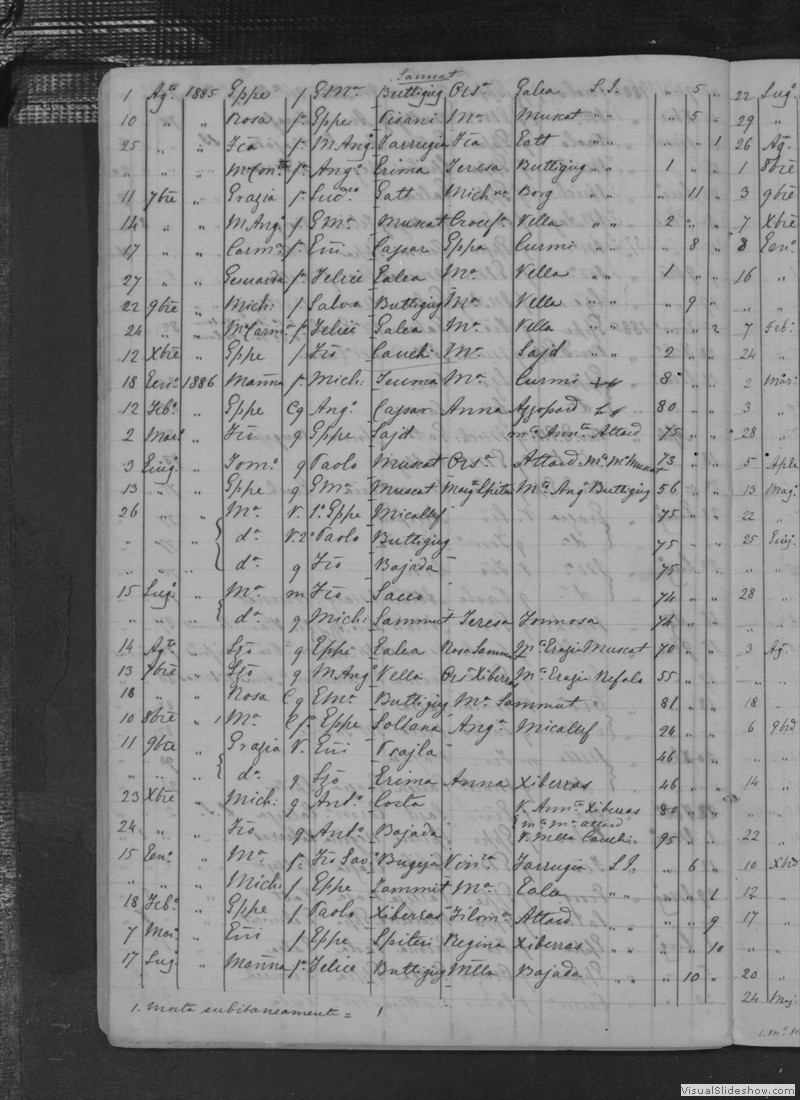 Sannat
1 Agto 1885 Gppe f GMa Buttigieg Orsa Galea S.I. " 5 " 22 Lugo
10 " " Rosa fa Gppe Pisani Ma Muscat " " " 5 " 29 "
25 " " Fca fa M Ango Farrugia Fca Gatt " " " " 1 26 Ago
" " " fa Ango Grima Teresa Buttigieg " " 1 " " 1 8bre
11 7bre " Grazia fa Gatt Borg " " " 11 " 3 9bre
14 " " M Anga f GMa Muscat Crocefa Vella " " 2 " " 7 Xbre
17 " " Carma fa Cajsar Gppa Curmi " " " 8 " 8 Geno
27 " " fa Felice Galea Ma Vella " " 1 " " 16 "
22 9bre " Mich: f Salvo Buttigieg Ma Vella " " " 9 "
24 " " Ma Carma fa Felice Galea Ma Vella " " " " 2 7 Feb:
12 Xbre " Gppe f Fro Cauchi Ma Sajd " " 2 " " 24 "
18 Geno 1886 Manna fa Mich: Ma Curmi 8 " " 2 Mar:
12 Febo " Gppe Cg Ango Cajsar Anna Azzopard 80 " " 3 "
2 Mar: " Fro g Gppe Sajd ma Anna Attard 75 " " 28 "
3 Giug " Tomo g Paolo Muscat Orsa Attard Ma Ma Muscat 73 " " 5 Aple
13 " " Gppe g GMa Muscat Marga Spiteri Ma Anga Buttigieg 56 " " 13 Mag:
26 " " Ma V. 1o Gppe Micallef 75 " " 22 "
" " " da V. 2o Paolo Buttigieg 75 " " 25 Giug.
" " " da g Fro Bajada 75 " " "
15 Lugo " Ma m Fro Sacco 74 " " 28 "
" " " da g Mich: Sammut Teresa Formosa 74 " "
14 Agto " g Gppe Galea Rosa Samm Ma Grazia Muscat 70 " " 3 Ag.
13 7bre " g M Ango Vella Orsa Xiberras Ma Grazia Refalo 55 " "
18 " " Rosa Cg GMa Buttigieg Ma Sammut 81 " " 18 "
10 8bre " 1 Ma C fa Gppe Soltana Anga Micallef 24 " " 6 9bre
11 9bre " Grazia V. Psajla 46 " "
" " " da g Grima Anna Xiberras 46 " " 14 "
23 Xbre " Mich: g Anto Costa V. Anna Xiberras 80 " "
ma Ma Attard
24 " " Fro g Anto Bajada V. Mtta Cauchi 95 " " 22 "
15 Geno " Ma fa Fro Sav: Bugeja Vinza Farrugia S.I. " 6 " 10 Xbre
" " " Mich: f Gppe Sammut Ma Galea " " " " 1 12 "
18 Febo " Gppe f Paolo Xiberras Filoma Attard " " " " 9 17 "
7 Mar: " f Gppe Spiteri Regina Xiberras " " " " 10 " "
17 Lug " Manna fa Felice Buttigieg Mtta Bajada " " " 10 " 20 "
24 Mag:
1. Morta subitaneamente = 1
VisualSlideshow.com